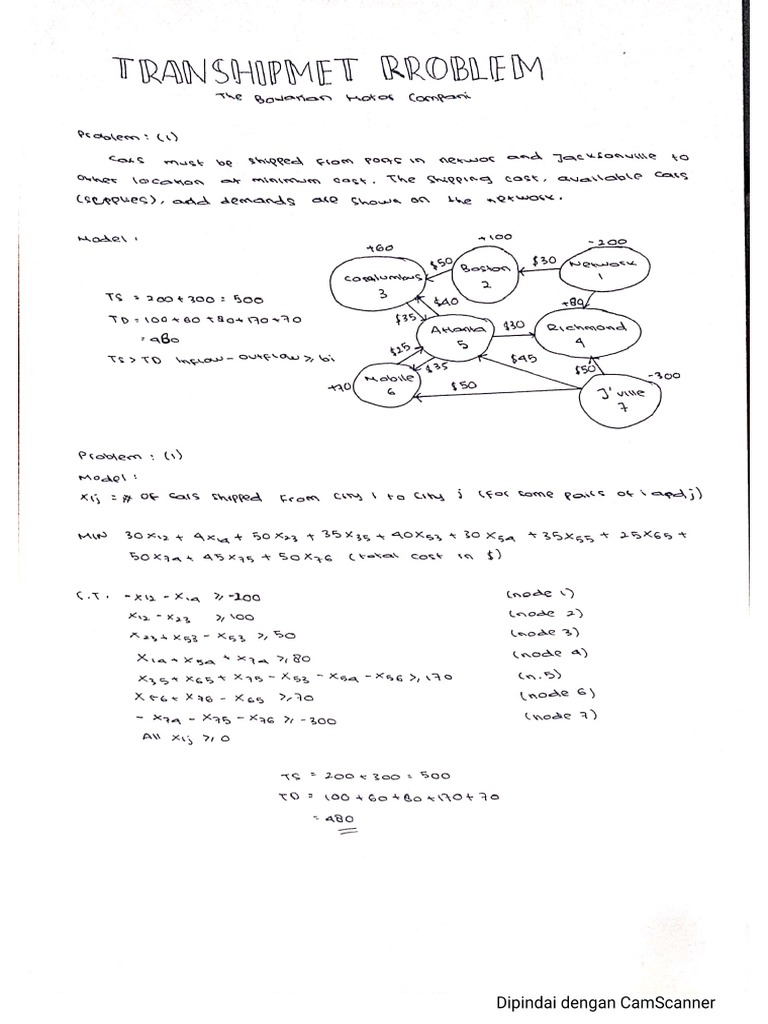 TRANSHIPMET RROBLEM
The Bavarian Motor Compani
Problem : (1)
Cars must be shipped from ports in networ and Jacksonville to
other location at minimum cost. The shipping cost, available cars
(supplies), add demands are shown on the network.
Model :
+60
+100
-200
$50
$30
Boston
2
Network
1
3
+80
TS = 200 + 300 = 500
$40
TD = 100 + 60 + 80 + 170 + 70
$35
Atlanta
5
$30
Richmond
4
= 480
$25
TS > TD Inflow - outflow ≥ bi
$35
$45
$50
-300
+70
Mobile
6
$50
J'ville
7
Problem : (1)
Model :
Xij = # of cars shipped from city i to city j (for some pairs of i and j)
MIN 30X12 + 4X14 + 50X23 + 35X35 + 40X53 + 30X54 + 35X55 + 25X65 +
50X74 + 45X75 + 50X76 (total cost in $)
S.T. -X12 - X14 ≥ -200 (node 1)
X12 - X23 ≥ 100 (node 2)
X23 + X53 - X53 ≥ 50 (node 3)
X14 + X54 + X74 ≥ 80 (node 4)
X35 + X65 + X75 - X53 - X54 - X56 ≥ 170 (n.5)
X56 + X76 - X65 ≥ 70 (node 6)
- X74 - X75 - X76 ≥ -300 (node 7)
All Xij ≥ 0
TS = 200 + 300 = 500
TD = 100 + 60 + 80 + 170 + 70
= 480
Dipindai dengan CamScanner